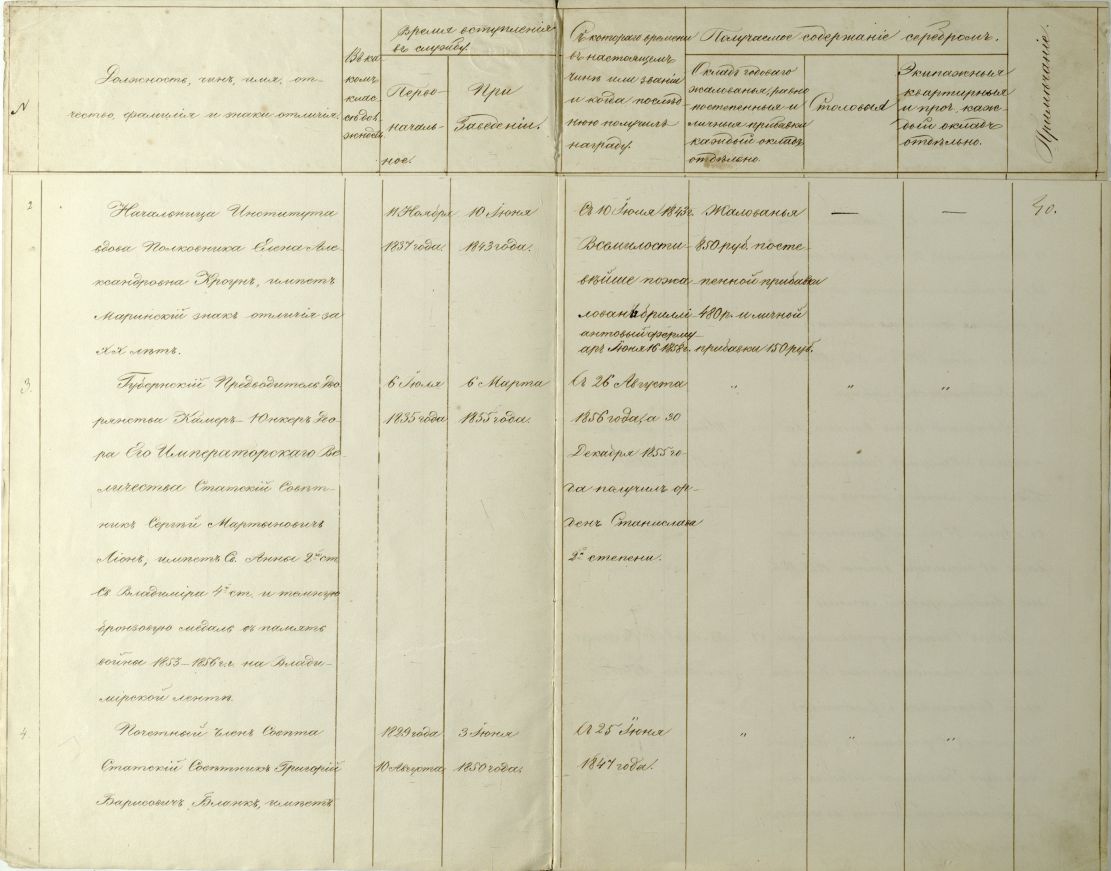 N
Должность, чинъ, имя, от-
чество, фамилія и знаки отличія.
Въ ка
комъ
клас-
сѣ дол
жность.
Время вступленія
въ службу.
Перво-
началь-
ное.
При
Заведеніи.
Съ котораго времени
въ настоящемъ
чинѣ или званіи
и когда послѣд-
нюю получилъ
награду.
Получаемое содержаніе серебромъ.
Окладъ годоваго
жалованья, равно
постепенныя и
личныя прибавки
каждый окладъ
отдѣльно.
Столовыя
Экипажныя
квартирныя
и проч. каж-
дый окладъ
отдѣльно.
Примѣчаніе.
2
Начальница Института
вдова Полковника Елена Але-
ксандровна Кроунъ, имѣетъ
Маріинскій знакъ отличія за
XX лѣтъ.
11 Ноября
1837 года.
10 Іюня
1843 года.
Съ 10 Іюня 1843 г.
Всемилости-
вѣйше пожа-
лованъ брилли-
антовый ферму-
аръ Іюня 16 1858 г.
Жалованья
850 руб. посте-
пенной прибавки
480 р. и личной
прибавки 150 руб.
—
—
40.
3.
Губернскій Предводитель Дво-
рянства Камеръ-Юнкеръ Дво-
ра Его Императорскаго Ве-
личества Статскій Совѣт-
никъ Сергѣй Мартыновичъ
Ліонъ, имѣетъ Св. Анны 2й ст.
Св. Владиміра 4й ст. и темную
бронзовую медаль въ память
войны 1853–1856 г.г. на Влади-
мірской лентѣ.
6 Іюля
1835 года
6 Марта
1855 года.
Съ 26 Августа
1856 года, а 30
Декабря 1855 го-
да получилъ ор-
денъ Станислава
2й степени.
"
"
"
4.
Почетный Членъ Совѣта
Статскій Совѣтникъ Григорій
Барисовичъ Бланкъ, имѣетъ
1829 года
10 Августа
3 Іюня
1850 года.
Съ 25 Іюня
1847 года.
"
"
"